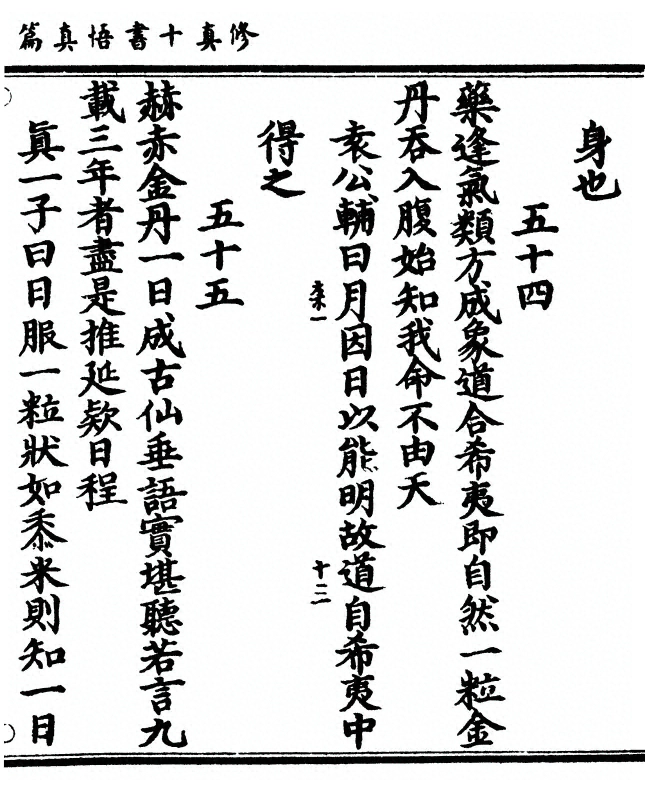 修真十書悟真篇
身也
五十四
藥逢氣類方成象道合希夷即自然一粒金
丹吞入腹始知我命不由天
袁公輔曰月因日以能明故道自希夷中
柰一
十二
得之
五十五
赫赤金丹一日成古仙垂語實堪聽若言九
載三年者盡是推延欵日程
眞一子曰日服一粒狀如黍米則知一日